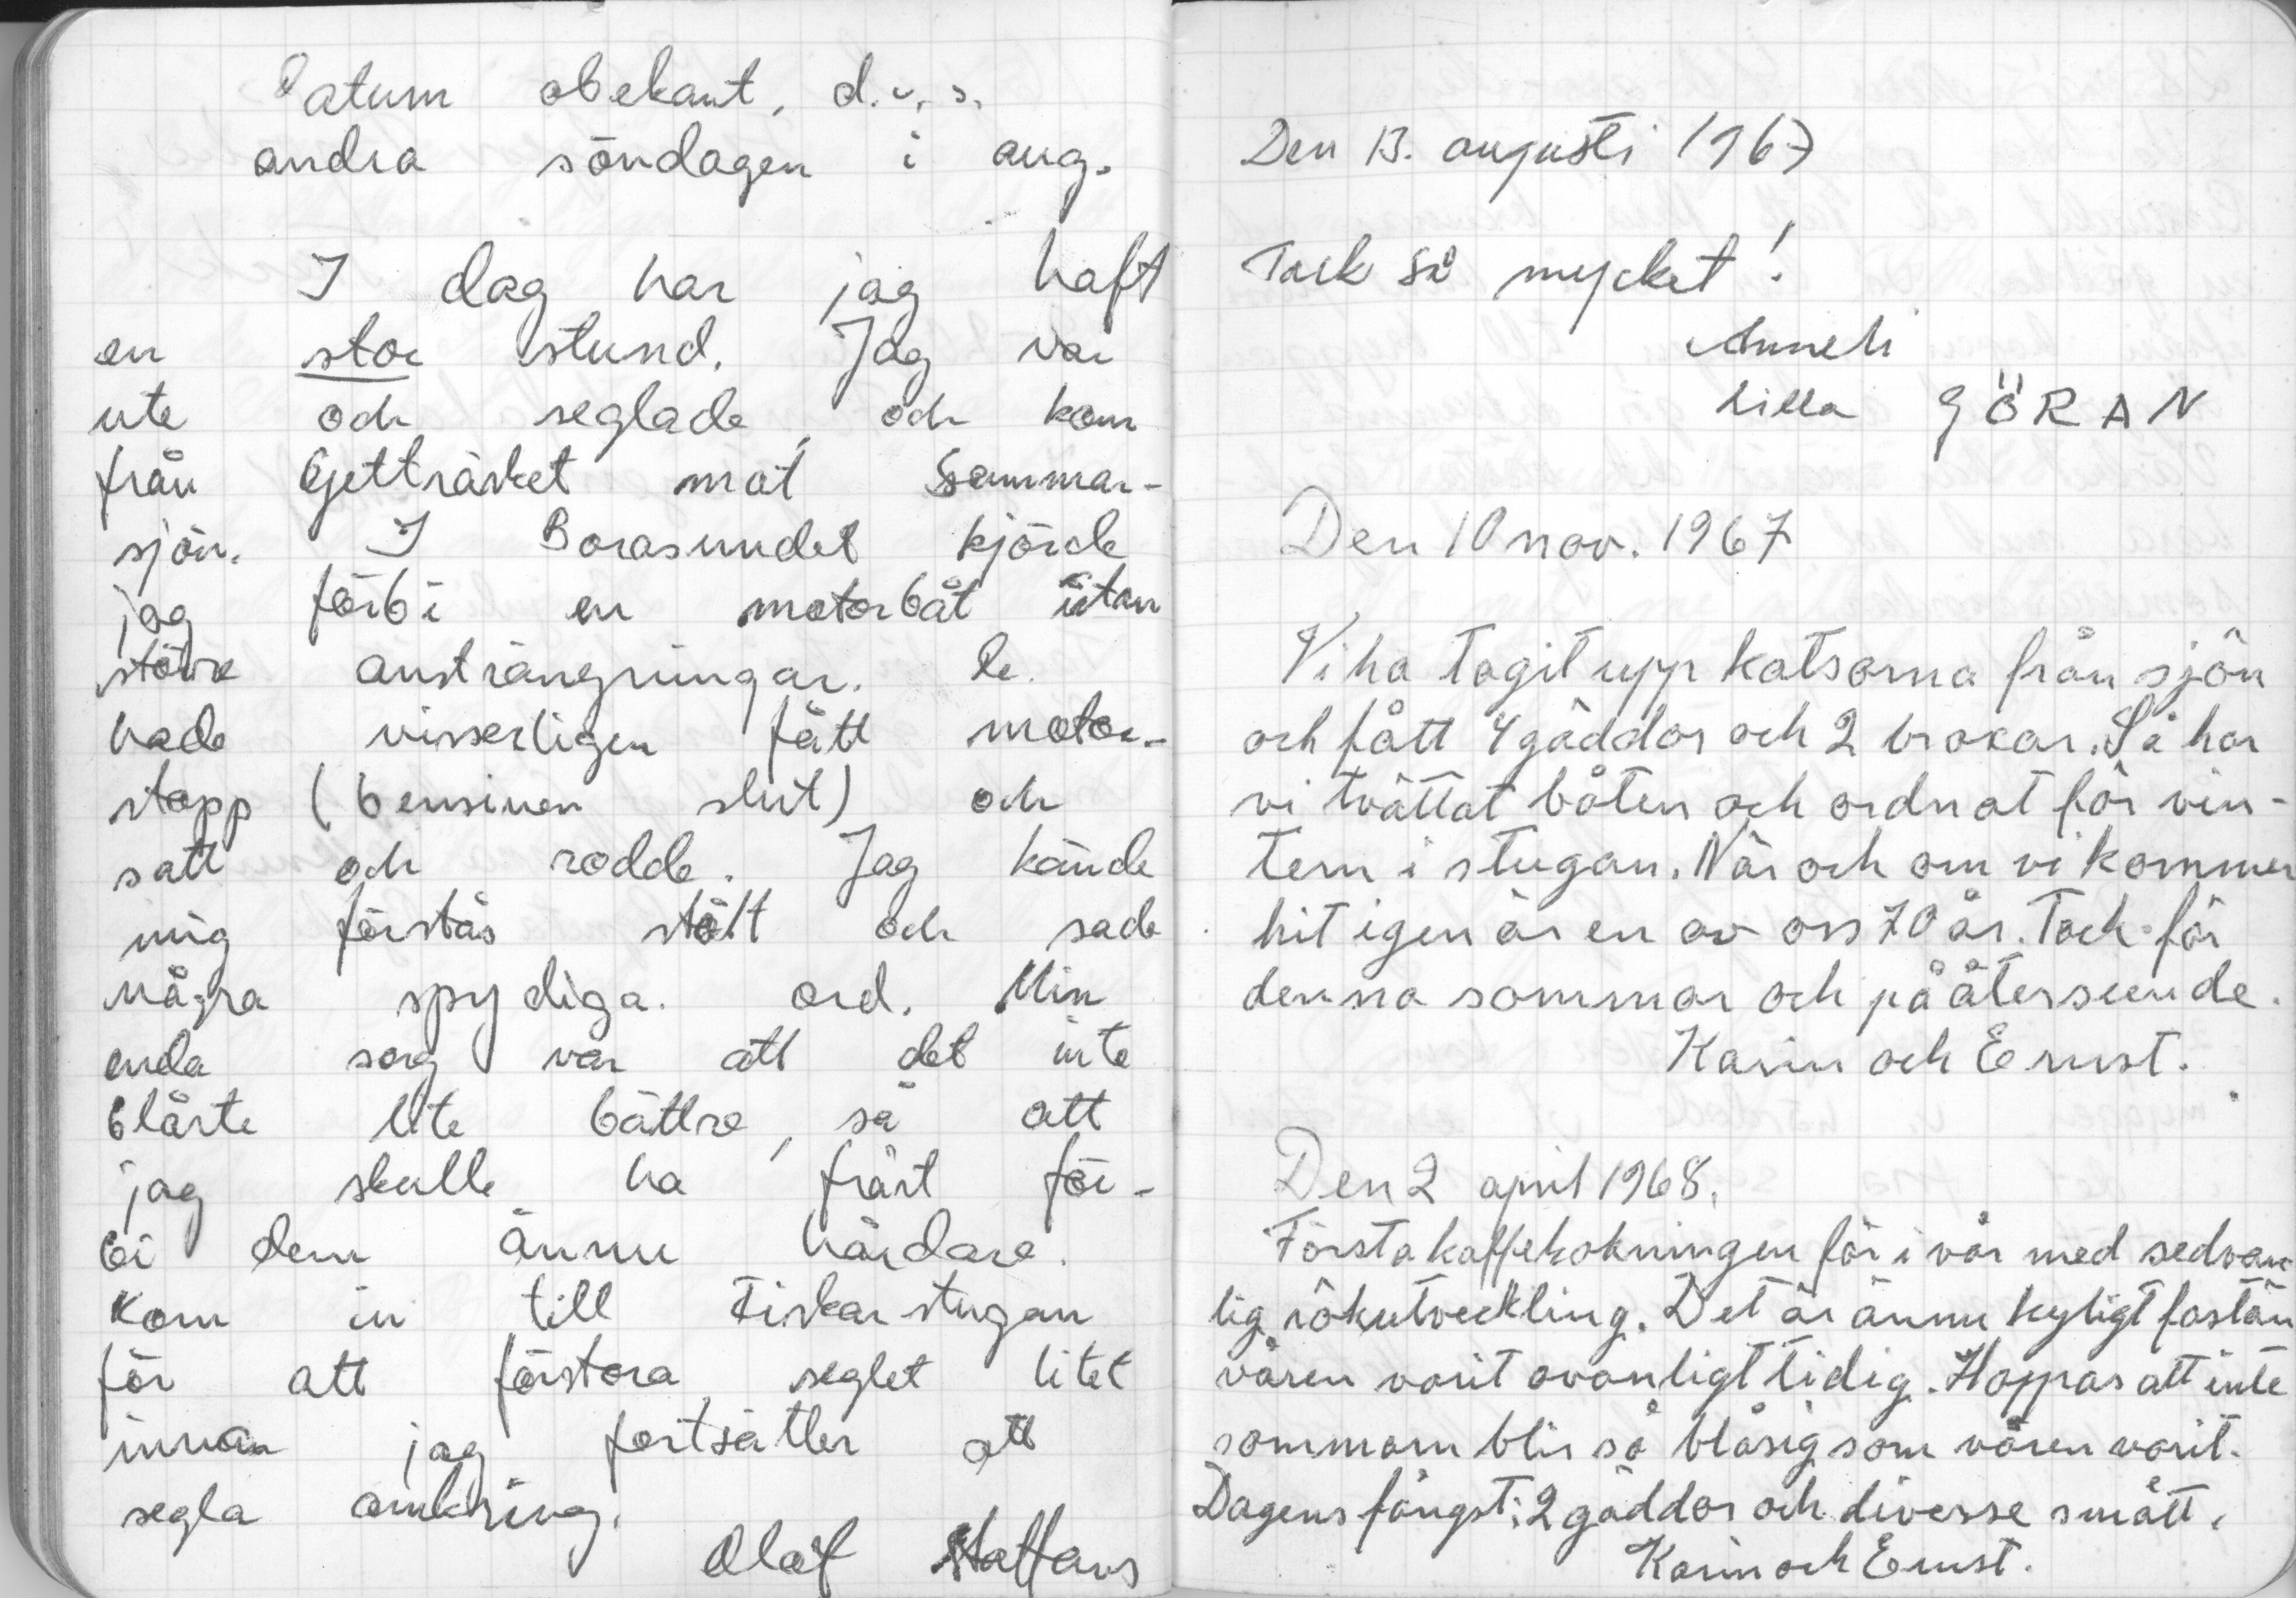 Datum obekant, d.v.s.
andra söndagen i aug.
I dag har jag haft
en stor stund. Jag var
ute och seglade, och kom
från Gjetträsket mot Sommar-
sjön. I Borasundet kjörde
jag förbi en motorbåt utan
större ansträngningar. De
hade visserligen fått motor-
stopp (bensinen slut) och
satt och rodde. Jag kände
mig förstås stolt och sade
några spydiga ord. Min
enda sorg var att det inte
blåste lite bättre, så att
jag skulle ha fräst för-
bi dem ännu hårdare.
Kom in till Fiskarstugan
för att förstora seglet litet
innan jag fortsätter att
segla omkring.
Olof Staffans
Den 13. augusti 1967
Tack så mycket!
Anneli
Lilla GÖRAN
Den 10 nov. 1967
Vi ha tagit upp katsorna från sjön
och fått 4 gäddor och 2 braxar. Så har
vi tvättat båten och ordnat för vin-
tern i stugan. När och om vi kommer
hit igen är en av oss 70 år. Tack för
denna sommar och på återseende.
Karin och Ernst.
Den 2 april 1968.
Första kaffekokningen för i vår med sedvan-
lig rökutveckling. Det är ännu kyligt fastän
våren varit ovanligt tidig. Hoppas att inte
sommarn blir så blåsig som våren varit.
Dagens fångst: 2 gäddor och diverse smått.
Karin och Ernst.